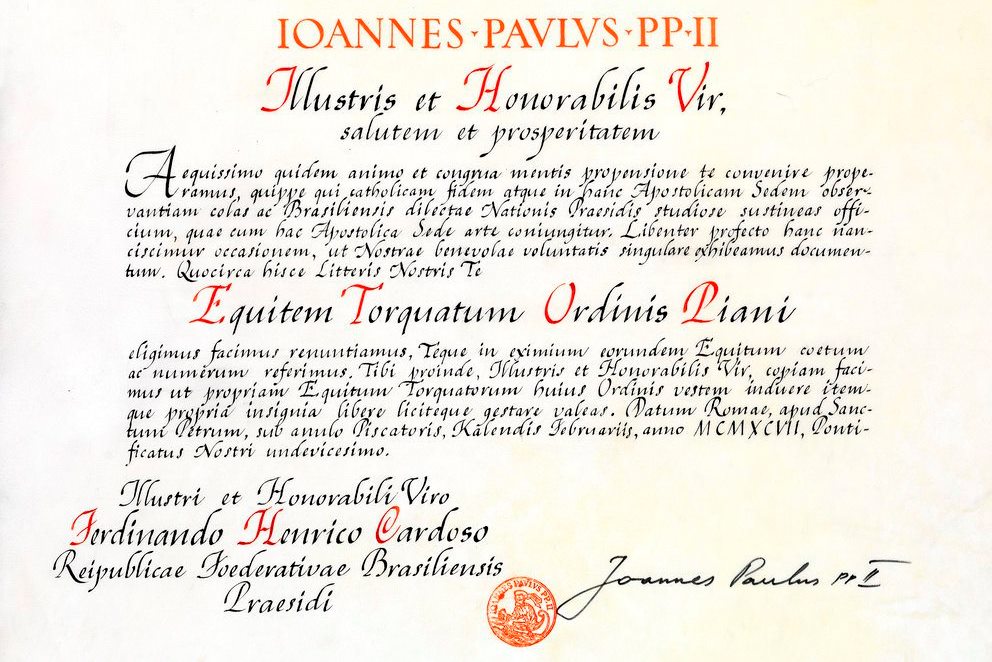 IOANNES·PAVLVS·PP·II
Illustris et Honorabilis Vir,
salutem et prosperitatem
Aequissimo quidem animo et congrua mentis propensione te convenire prope-
ramus, quippe qui catholicam fidem atque in hanc Apostolicam Sedem obser-
vantiam colas ac Brasiliensis dilectae Nationis Praesidis studiose sustineas offi-
cium, quae cum hac Apostolica Sede arte coniungitur. Libenter profecto hanc nan-
ciscimur occasionem, ut Nostrae benevolae voluntatis singulare exhibeamus documen-
tum. Quocirca hisce Litteris Nostris Te
Equitem Torquatum Ordinis Piani
eligimus facimus renuntiamus, Teque in eximium eorundem Equitum coetum
ac numerum referimus. Tibi proinde, Illustris et Honorabilis Vir, copiam faci-
mus ut propriam Equitum Torquatorum huius Ordinis vestem induere item-
que propria insignia libere liciteque gestare valeas. Datum Romae, apud Sanc-
tum Petrum, sub anulo Piscatoris, Kalendis Februariis, anno MCMXCVII, Ponti-
ficatus Nostri undevicesimo.
Illustri et Honorabili Viro
Ferdinando Henrico Cardoso
Reipublicae Foederativae Brasiliensis
Praesidi
Joannes Paulus PP II